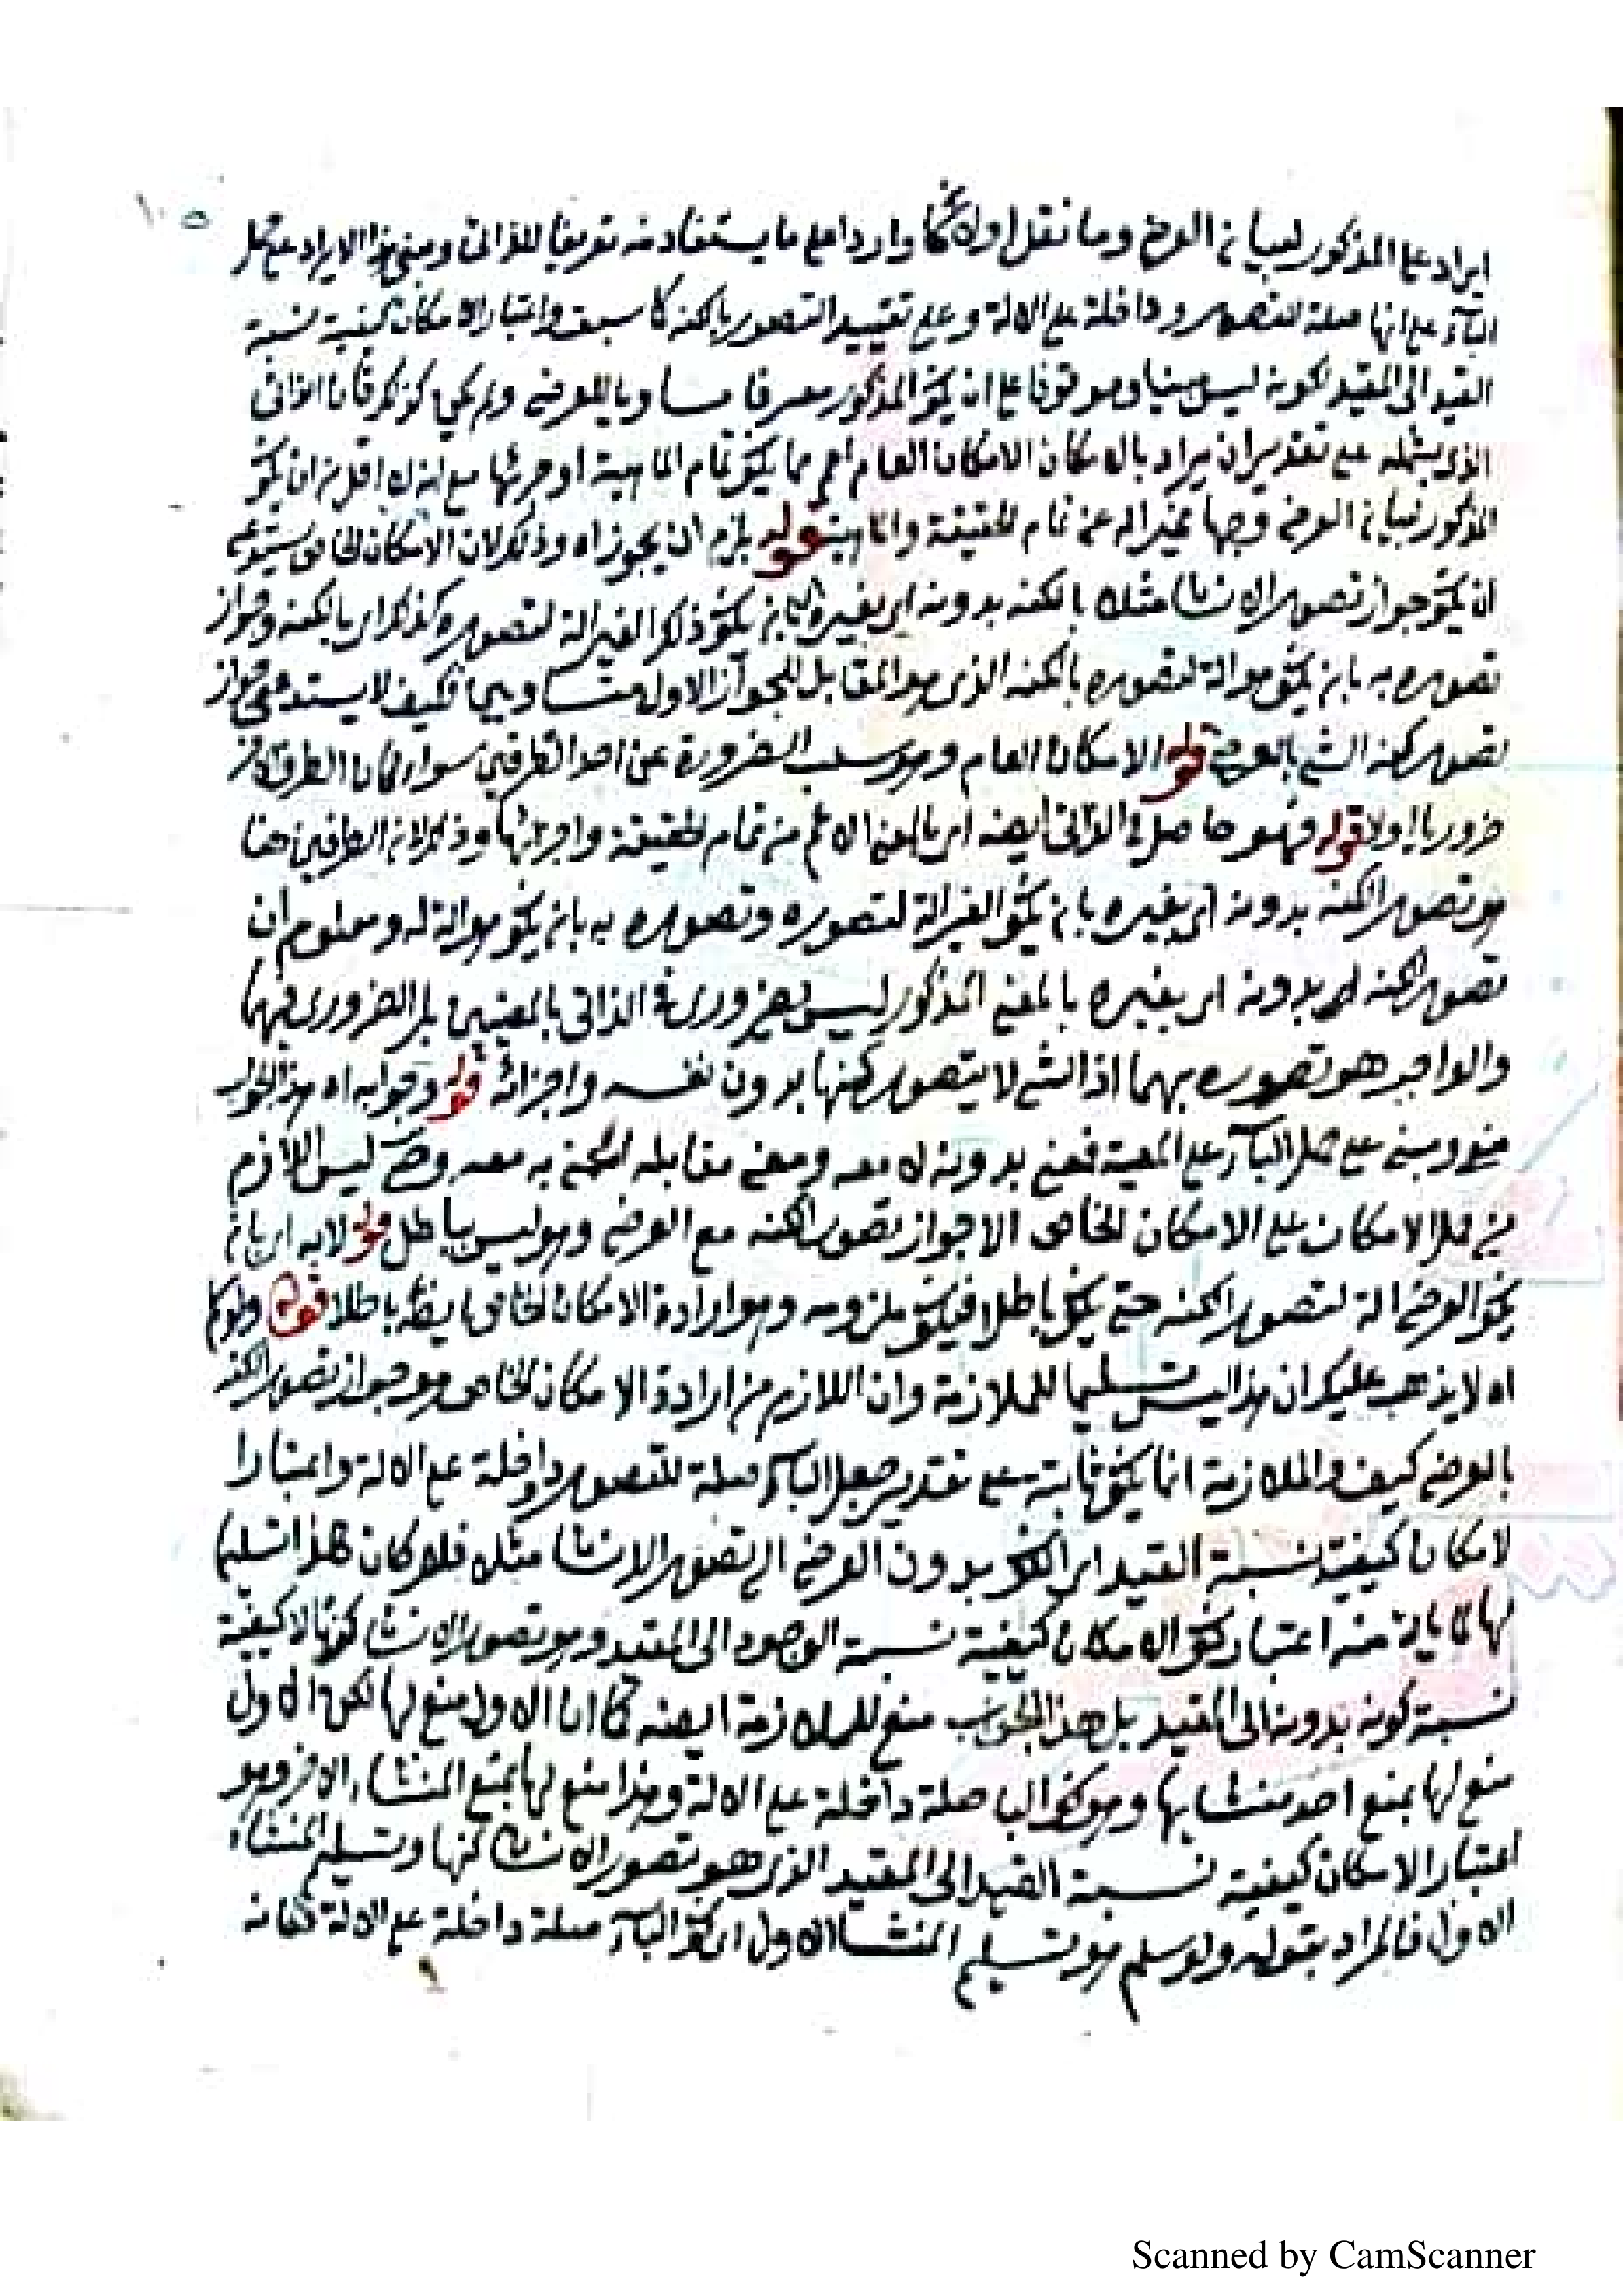 ١٠٥
ايراد على المذكور لبيان العرضى وما نقل اولا واردا على ما يستفاد منه تعريفا للذاتى ومبنى هذا الايراد على حمل
البآء على انها صلة للتصور وداخلة على الالة وعلى تقييد التصور بالكنه كما سبق واعتبار الامكان كيفية نسبة
القيد الى المقيد لكونه ليس مبنيا وموقوفا على ان يكون المذكور معرفا مساويا للعرضى ولم يكن كذلك فان الذاتى
الذى يشمله على تقدير ان يراد بالامكان الامكان العام اعم مما يكون تمام الماهية او جزئها مع انه لا اقل من ان يكون
المذكور لبيان العرضى وجها مميزا له عن تمام الحقيقة والماهية قوله يلزم ان يجوز اه وذلك لان الامكان الخاص يستدعى
ان يكون جواز تصور الانسان مثلا بالكنه بدونه اى بغيره بان يكون ذلك الغير الة لتصوره كذلك اى بالكنه وجواز
تصوره به بان يكون هو الة لتصوره بالكنه الذى هو المقابل للجواز الاول متساويين فكيف لا يستدعى جواز
تصور كنه الشئ بالعرضى قوله الامكان العام وهو سلب الضرورة عن احد الطرفين سواء كان الطرف الاخر
ضروريا اولا قوله فهو حاصل فى الذاتى ايضا اى بالمعنى الاعم من تمام الحقيقة واجزائها وذلك لان الطرفين هنا
هو تصور الكنه بدونه اى بغيره بان يكون الغير الة لتصوره وتصوره به بان يكون هو الة له ومعلوم ان
تصور الكنه اى بدونه اى بغيره بالمعنى المذكور ليس بضرورى فى الذاتى بالمعنيين بل الضرورى فيهما
والواجب هو تصوره بهما اذ الشئ لا يتصور كنهها بدون نفسه واجزائه قوله وجوابه اه هذا الجواب
منع ومبنى على حمل البآء على المعية فمعنى بدونه لا معه ومعنى مقابله الكنه به معه وح ليس اللازم
من حمل الامكان على الامكان الخاص الا جواز تصور الكنه مع العرضى وهو ليس بباطل قوله لا به اى بان
يكون العرضى الة لتصور الكنه حتى يكون باطلا فيكون ملزومه وهو ارادة الامكان الخاص ايضا باطلا قوله ولو سلم
اه لا يذهب عليك ان هذا ليس تسليما للملازمة وان اللازم من ارادة الامكان الخاص هو جواز تصور الكنه
بالعرضى كيف والملازمة انما يكون ثابتة على تقدير جعل البآء صلة للتصور داخلة على الالة واعتبار ا
لامكان كيفية نسبة القيد اى الكون بدون العرضى الى تصور الانسان مثلا فلو كان هذا تسليما
لها لما يلا منه اعتبار كون الامكان كيفية نسبة الوجود الى المقيد وهو تصور الانسان كونها لا كيفية
نسبة كونه بدونه الى المقيد بل هذا الجواب منع للملازمة ايضا كما ان الاول منع لها لكن الاول
منع لها بمنع احد منشايها وهو كون البا صلة داخلة على الالة وهذا منع لها بمنع المنشاء الاخر وهو
اعتبار الامكان كيفية نسبة القيد الى المقيد الذى هو تصور الانسان كنها وتسليم المنشاء
الاول فالمراد بقوله ولو سلم هو تسليم المنشا الاول اى كون البآء صلة داخلة على الالة فكانه
Scanned by CamScanner